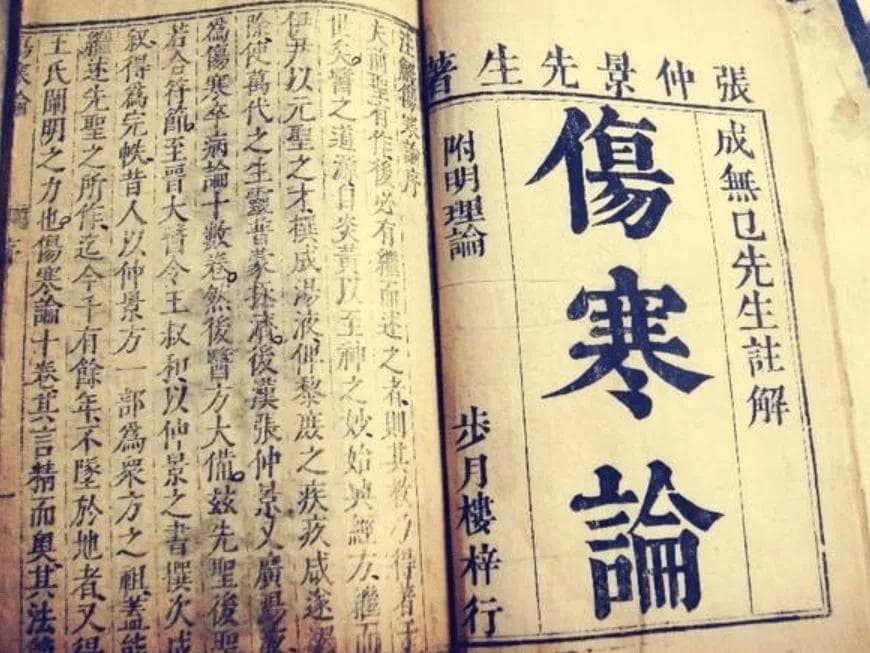 張仲景先生著
成無已先生註解
傷寒論
附明理論
步月樓梓行
注解傷寒論序
夫前聖有作後必有繼而述之者則其教乃得著于
世矣醫之道源自炎黃以至神之妙始興經方繼而
伊尹以元聖之才撰成湯液俾黎庶之疾疢咸遂蠲
除使萬代之生靈普蒙拯濟後漢張仲景又廣湯液
為傷寒卒病論十數卷然後醫方大備茲先聖後聖
若合符節至晉太醫令王叔和以仲景之書撰次成
叙得為完帙昔人以仲景方一部為衆方之祖蓋能
繼述先聖之所作迄今千有餘年不墜於地者又得
王氏闡明之力也傷寒論十卷其言精而奧其法簡
傷寒論
序